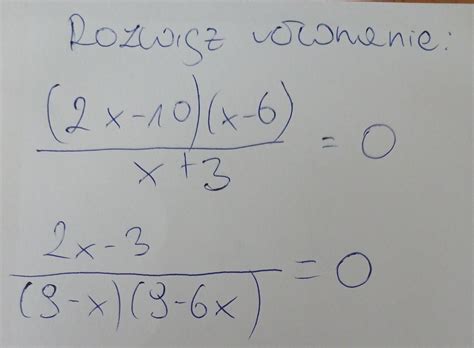 Rozwiąż równanie:
(2x-10)(x-6)
x+3
= 0
2x-3
(9-x)(9-6x)
= 0